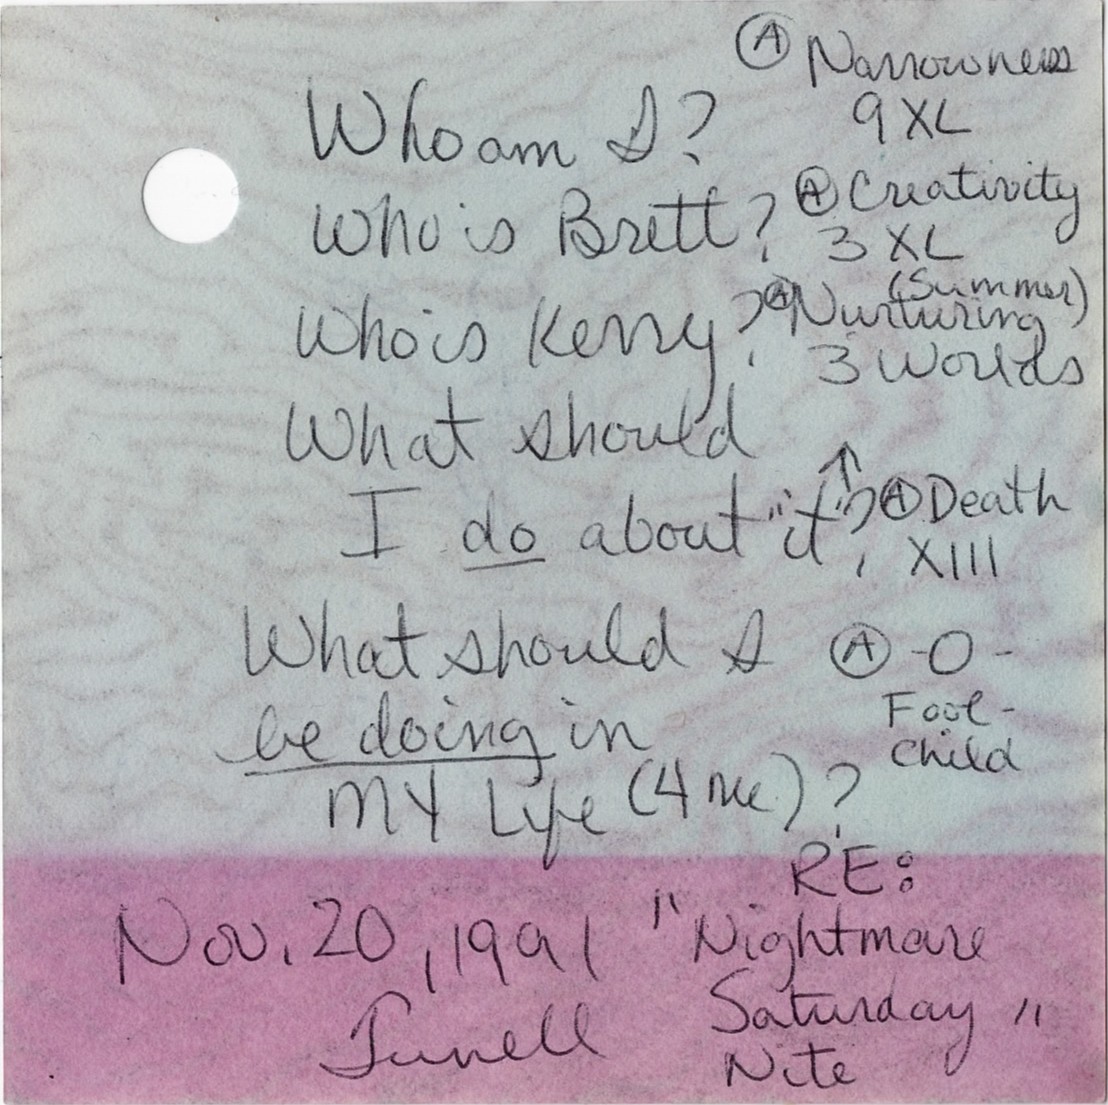 Ⓐ Narrowness
Who am I? 9 XL
Who is Brett? Ⓐ Creativity
3 XL
(Summer)
Who is Kerry? Ⓐ Nurturing
3 Worlds
What should
I do about "it"? ↑ Ⓐ Death
XIII
What should I Ⓐ -0-
be doing in Fool-
Child
MY Life (4 me)?
RE:
Nov. 20, 1991 "Nightmare
Saturday
Nite"